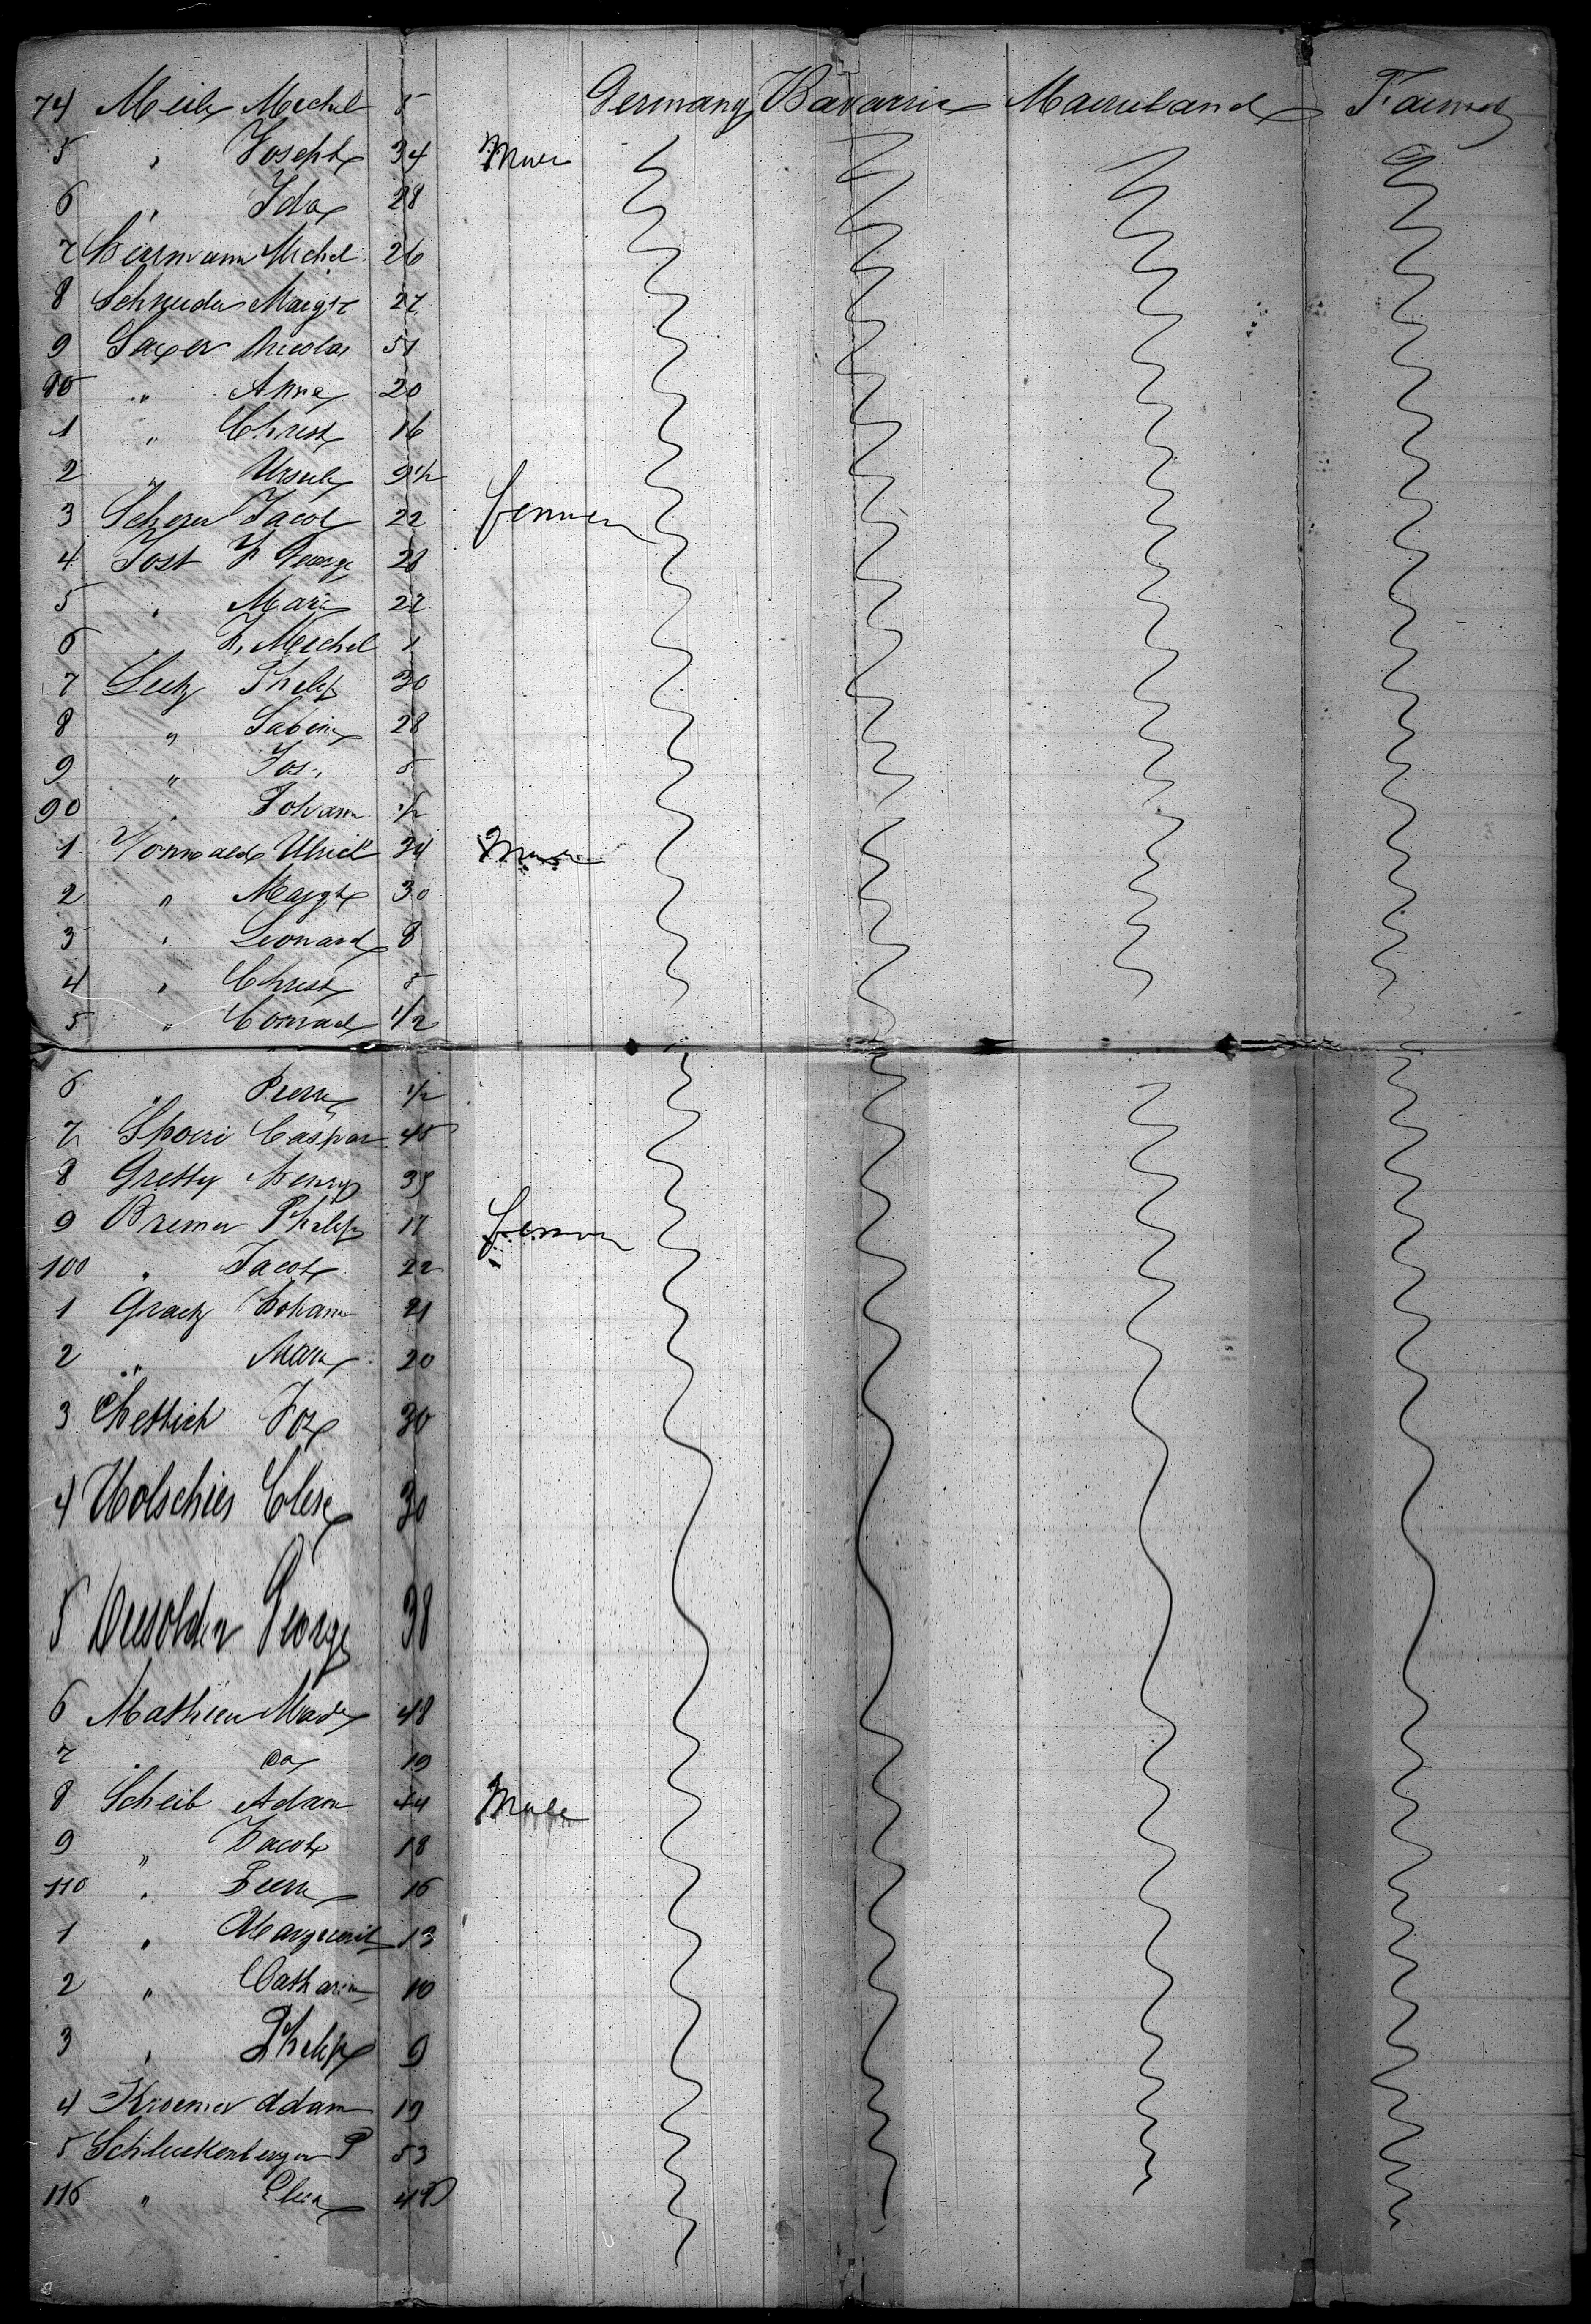 74 Meily Michel 5 Germany Bavaria Maryland Farmer
5 " Joseph 34
6 " Ida 28
7 Hermann Michel 26
8 Schneider Margt 27
9 Saxer Nicolas 51
80 " Anna 20
1 " Christ 16
2 " Ursule 9 1/2
3 Scherer Jacob 22
4 Jost J George 28
5 " Marie 27
6 " J. Michel 1
7 Lutz Philip 30
8 " Sabine 28
9 " Jos. 5
90 " Johann 1/2
1 Vonwald Ulrich 34
2 " Margt 30
3 " Leonard 8
4 " Christ 5
5 " Conrad 1/2
6 " Pierre 1/2
7 Spoeri Caspar 45
8 Gretty Henry 35
9 Bremer Philip 17
100 " Jacob 22
1 Graetz Johann 21
2 " Marie 20
3 Hettich Jos 30
4 Holschies 30
5 George 38
6 Mathieu Made 48
7 " do 19
8 Scheib Adam 44 Male
9 " Jacob 18
110 " Pierre 16
1 " Marguerite 13
2 " Catharine 10
3 " Philip 9
4 Kroemer Adam 19
5 Schluckenberger P 53
116 " Elisa 49